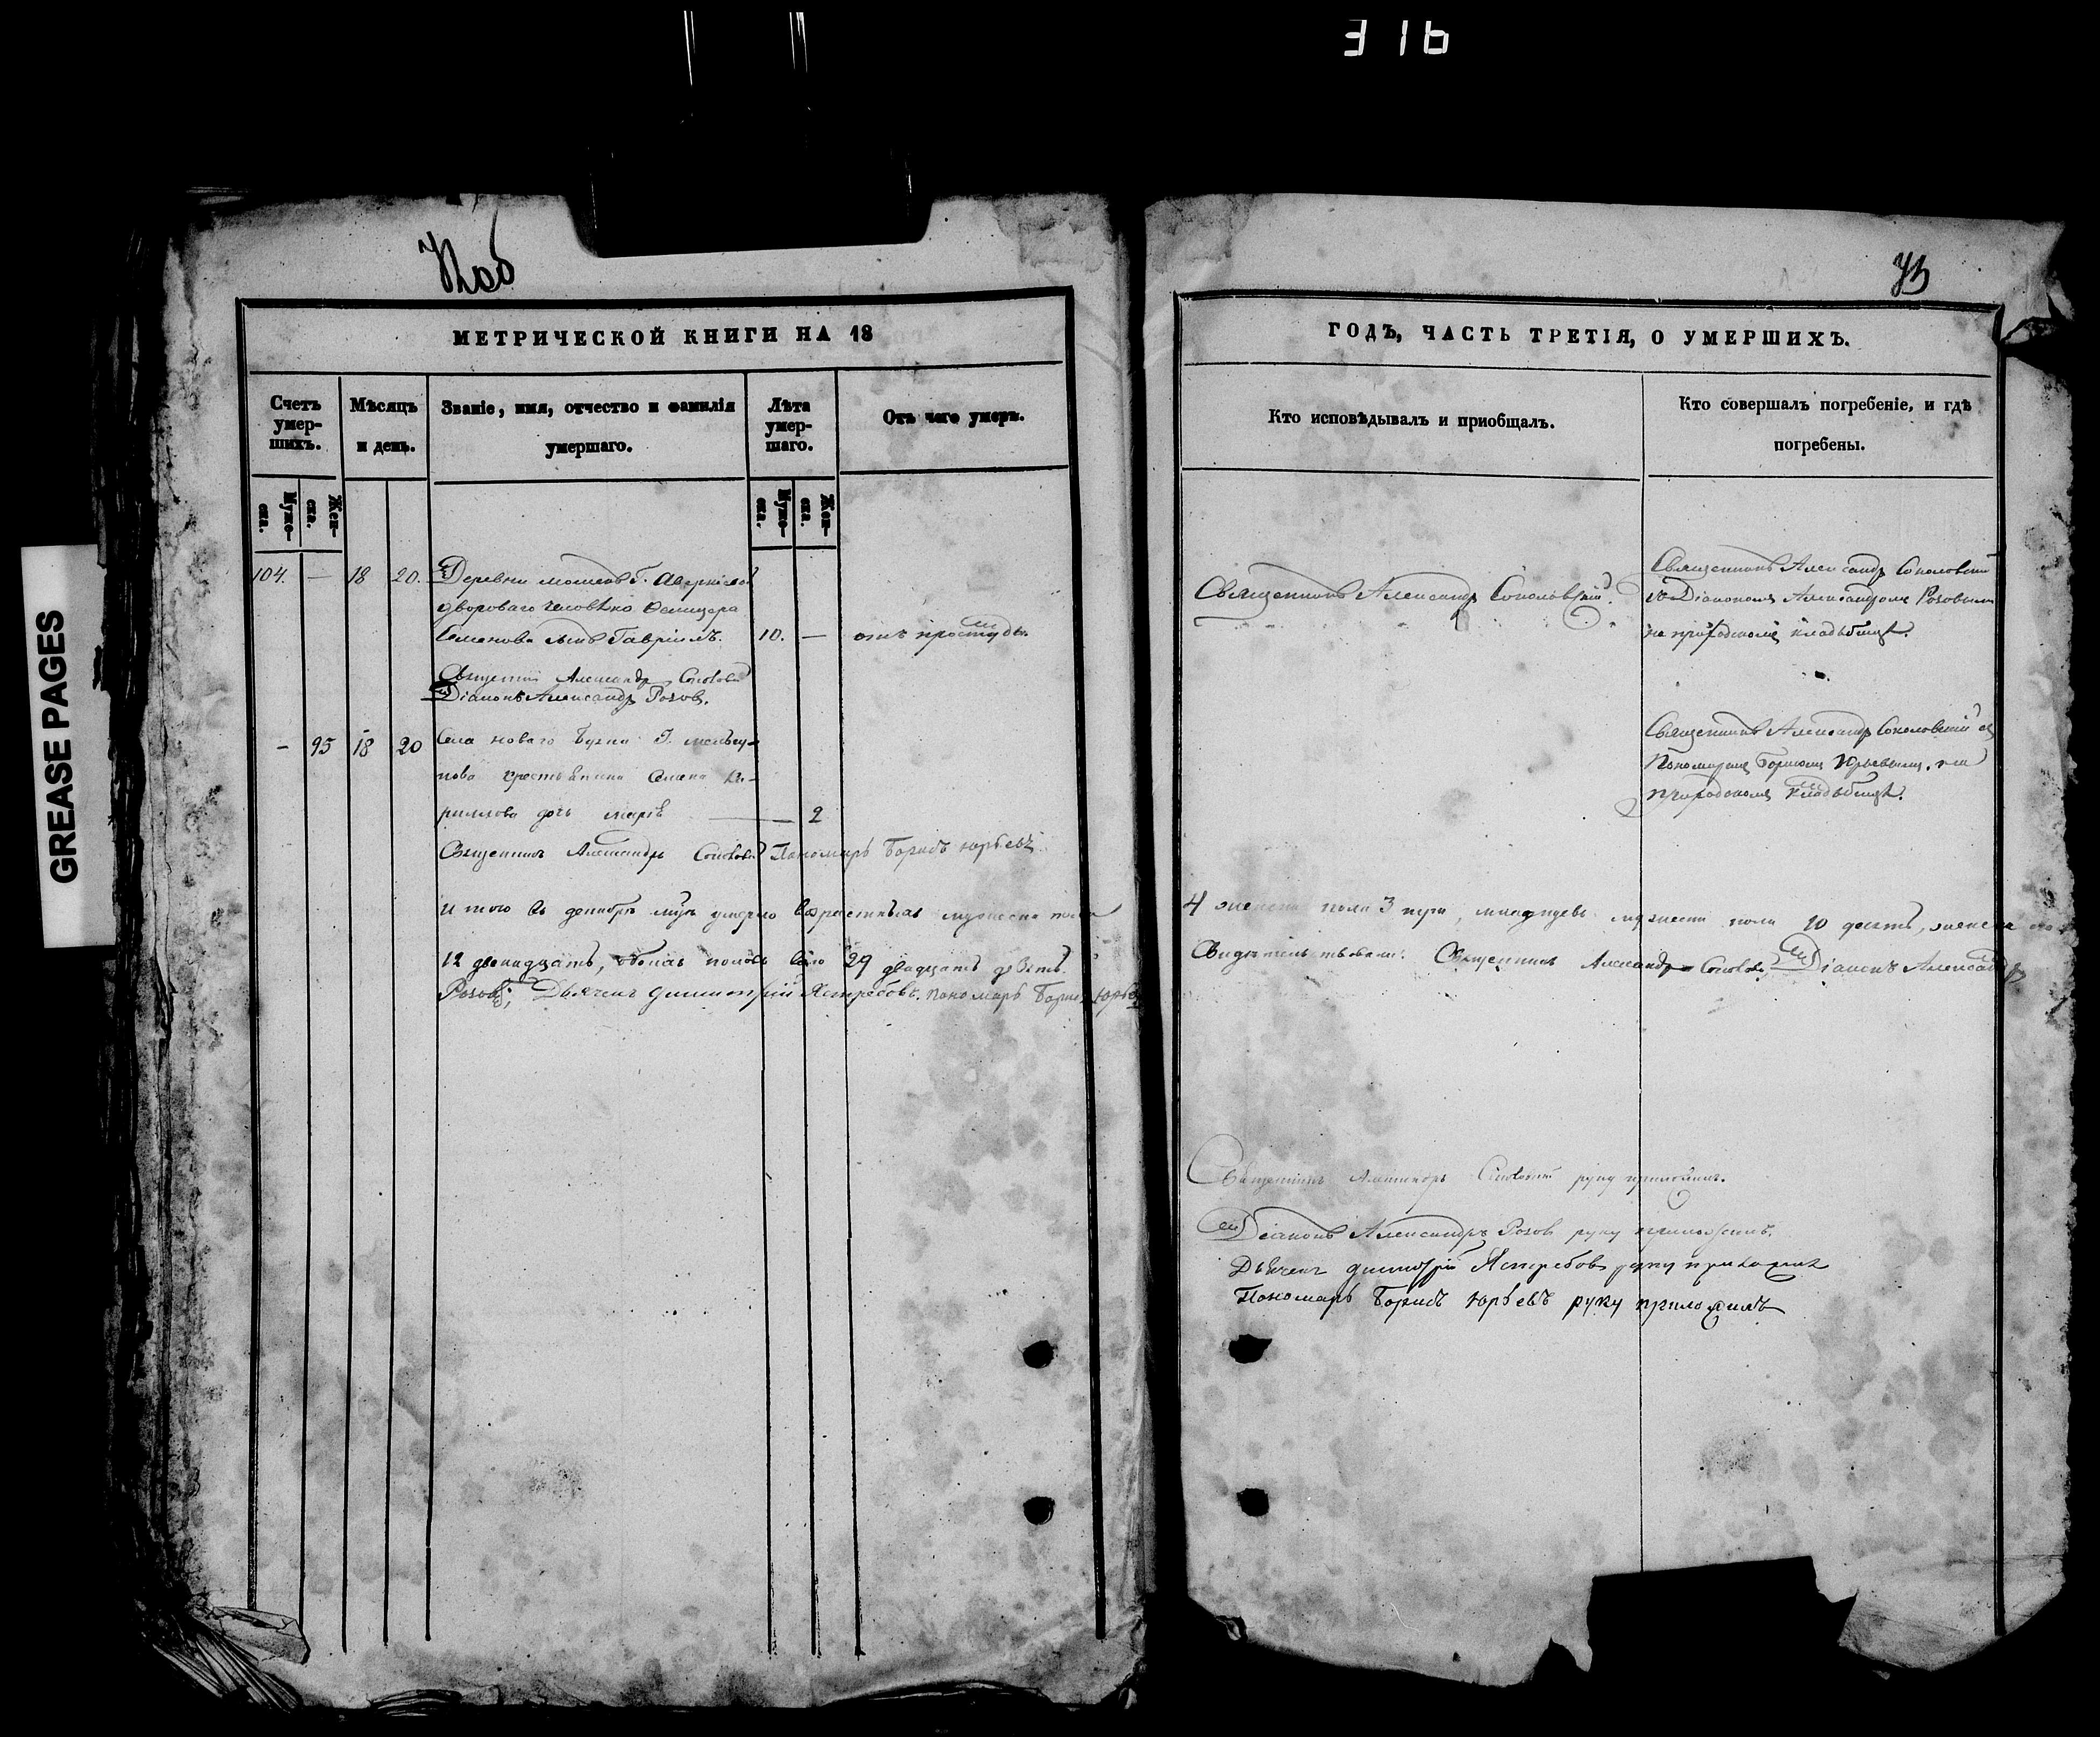 316
GREASE PAGES
МЕТРИЧЕСКОЙ КНИГИ НА 18
Счетъ умер-
шихъ.
Мѣсяцъ
и день.
Званіе, имя, отчество и фамилія
умершаго.
Лѣта
умер-
шаго.
Отъ чего умеръ.
Муже-
ска.
Жен-
ска.
Муже-
ска.
Жен-
ска.
104. — 18 20. Деревни
двороваго человѣка
Семенова сынъ Гавріилъ. 10. — отъ простуды.
Священникъ Александръ
Діаконъ Александръ Розовъ.
- 95 18 20 Села новаго
крестьянина
дочь — 2
Священникъ Александръ Пономарь Борисъ Юрьевъ
И того въ декабрѣ умерло мужеска пола
12 двенадцать, обоихъ половъ 29 двадцать девять.
Розовъ; Дьячекъ Димитрій Ястребовъ. Пономарь Борисъ Юрьевъ
ГОДЪ, ЧАСТЬ ТРЕТІЯ, О УМЕРШИХЪ.
Кто исповѣдывалъ и пріобщалъ.
Кто совершалъ погребеніе, и гдѣ
погребены.
Священникъ Александръ Соколовскій.
Священникъ Александръ Соколовскій
съ Діакономъ Александромъ Розовымъ
на приходскомъ кладбищѣ.
Священникъ Александръ Соколовскій съ
Пономаремъ Борисомъ Юрьевымъ, на
приходскомъ кладбищѣ.
4 женска пола 3 три, мужеска пола 10 десять, женска
Свидѣтельствовали: Священникъ Александръ Діаконъ Александръ
Священникъ Александръ руку приложилъ.
Діаконъ Александръ Розовъ руку приложилъ.
Дьячекъ Димитрій Ястребовъ руку приложилъ
Пономарь Борисъ Юрьевъ руку приложилъ